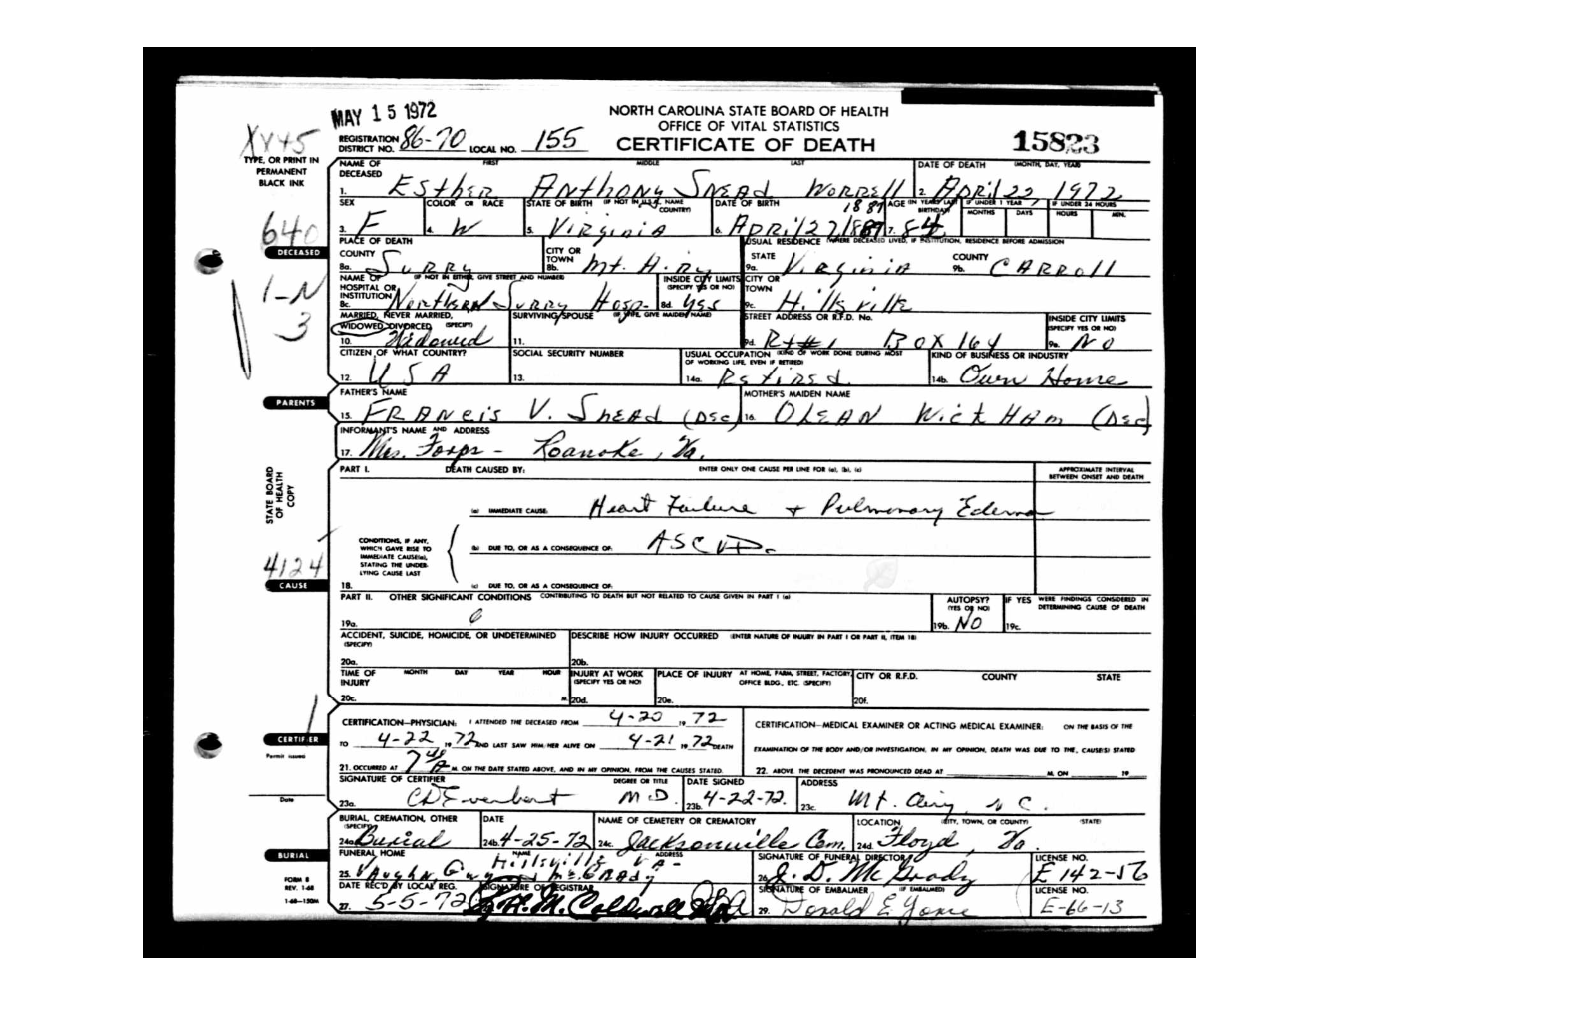 MAY 15 1972
NORTH CAROLINA STATE BOARD OF HEALTH
OFFICE OF VITAL STATISTICS
CERTIFICATE OF DEATH
15823
REGISTRATION DISTRICT NO. 86-70 LOCAL NO. 155
XV45
TYPE, OR PRINT IN
PERMANENT
BLACK INK
NAME OF DECEASED FIRST MIDDLE LAST DATE OF DEATH (MONTH, DAY, YEAR)
1. Esther Anthony Snead Worrell 2. April 22, 1972
SEX COLOR OR RACE STATE OF BIRTH (IF NOT IN U.S.A. NAME COUNTRY) DATE OF BIRTH AGE (IN YEARS LAST BIRTHDAY) IF UNDER 1 YEAR MONTHS DAYS IF UNDER 24 HOURS HOURS MIN.
3. F 4. W 5. Virginia 6. April 27, 7. 84
640
DECEASED
PLACE OF DEATH USUAL RESIDENCE (WHERE DECEASED LIVED, IF INSTITUTION, RESIDENCE BEFORE ADMISSION
COUNTY CITY OR TOWN STATE COUNTY
8a. Surry 8b. Mt. Airy 9a. Virginia 9b. Carroll
NAME OF HOSPITAL OR INSTITUTION (IF NOT IN EITHER, GIVE STREET AND NUMBER) INSIDE CITY LIMITS (SPECIFY YES OR NO) CITY OR TOWN
8c. Northern Surry Hosp- 8d. Yes 9c. Hillsville
1-N
3
MARRIED, NEVER MARRIED, WIDOWED, DIVORCED (SPECIFY) SURVIVING SPOUSE (IF WIFE, GIVE MAIDEN NAME) STREET ADDRESS OR R.F.D. No. INSIDE CITY LIMITS (SPECIFY YES OR NO)
10. Widowed 11. 9d. Rt #1 Box 164 9e. No
CITIZEN OF WHAT COUNTRY? SOCIAL SECURITY NUMBER USUAL OCCUPATION (KIND OF WORK DONE DURING MOST OF WORKING LIFE, EVEN IF RETIRED) KIND OF BUSINESS OR INDUSTRY
12. USA 13. 14a. Retired. 14b. Own Home
PARENTS
FATHER'S NAME MOTHER'S MAIDEN NAME
15. Francis V. Snead (Dec) 16. Olean Wickham (Dec)
INFORMANT'S NAME AND ADDRESS
17. Mrs. - Roanoke, Va.
STATE BOARD
OF HEALTH
COPY
PART I. DEATH CAUSED BY: ENTER ONLY ONE CAUSE PER LINE FOR (a), (b), (c) APPROXIMATE INTERVAL BETWEEN ONSET AND DEATH
(a) IMMEDIATE CAUSE: Heart Failure + Pulmonary Edema
CONDITIONS, IF ANY,
WHICH GAVE RISE TO
IMMEDIATE CAUSE(a),
STATING THE UNDER-
LYING CAUSE LAST
(b) DUE TO, OR AS A CONSEQUENCE OF: ASCVD.
4124
CAUSE
18. (c) DUE TO, OR AS A CONSEQUENCE OF:
PART II. OTHER SIGNIFICANT CONDITIONS CONTRIBUTING TO DEATH BUT NOT RELATED TO CAUSE GIVEN IN PART I (a) AUTOPSY? (YES OR NO) IF YES WERE FINDINGS CONSIDERED IN DETERMINING CAUSE OF DEATH
19a. 19b. NO 19c.
ACCIDENT, SUICIDE, HOMICIDE, OR UNDETERMINED (SPECIFY) DESCRIBE HOW INJURY OCCURRED (ENTER NATURE OF INJURY IN PART I OR PART II, ITEM 18)
20a. 20b.
TIME OF INJURY MONTH DAY YEAR HOUR INJURY AT WORK (SPECIFY YES OR NO) PLACE OF INJURY AT HOME, FARM, STREET, FACTORY, OFFICE BLDG., ETC. (SPECIFY) CITY OR R.F.D. COUNTY STATE
20c. m. 20d. 20e. 20f.
CERTIFICATION—PHYSICIAN: I ATTENDED THE DECEASED FROM 4-20 19 72
TO 4-22 19 72 AND LAST SAW HIM/HER ALIVE ON 4-21 19 72 DEATH
21. OCCURRED AT A M. ON THE DATE STATED ABOVE, AND IN MY OPINION, FROM THE CAUSES STATED.
CERTIFICATION—MEDICAL EXAMINER OR ACTING MEDICAL EXAMINER: ON THE BASIS OF THE
EXAMINATION OF THE BODY AND/OR INVESTIGATION, IN MY OPINION, DEATH WAS DUE TO THE, CAUSE(S) STATED
22. ABOVE. THE DECEDENT WAS PRONOUNCED DEAD AT M. ON 19
CERTIFIER
Permit issued
Date
SIGNATURE OF CERTIFIER DEGREE OR TITLE DATE SIGNED ADDRESS
23a. M.D. 23b. 4-22-72. 23c. Mt. Airy, N C.
BURIAL, CREMATION, OTHER (SPECIFY) DATE NAME OF CEMETERY OR CREMATORY LOCATION (CITY, TOWN, OR COUNTY) (STATE)
24a. Burial 24b. 4-25-72 24c. Jacksonville Cem. 24d. Floyd, Va.
BURIAL
FUNERAL HOME NAME ADDRESS SIGNATURE OF FUNERAL DIRECTOR LICENSE NO.
Hillsville VA-
25. Vaughn, Gwyn McGrady 26. J. D. McGrady E 142-56
FORM 8
REV. 1-68
1-68—150M
DATE REC'D BY LOCAL REG. SIGNATURE OF REGISTRAR SIGNATURE OF EMBALMER (IF EMBALMED) LICENSE NO.
27. 5-5-72 H. M. Caldwell 29. Donald E. E-66-13